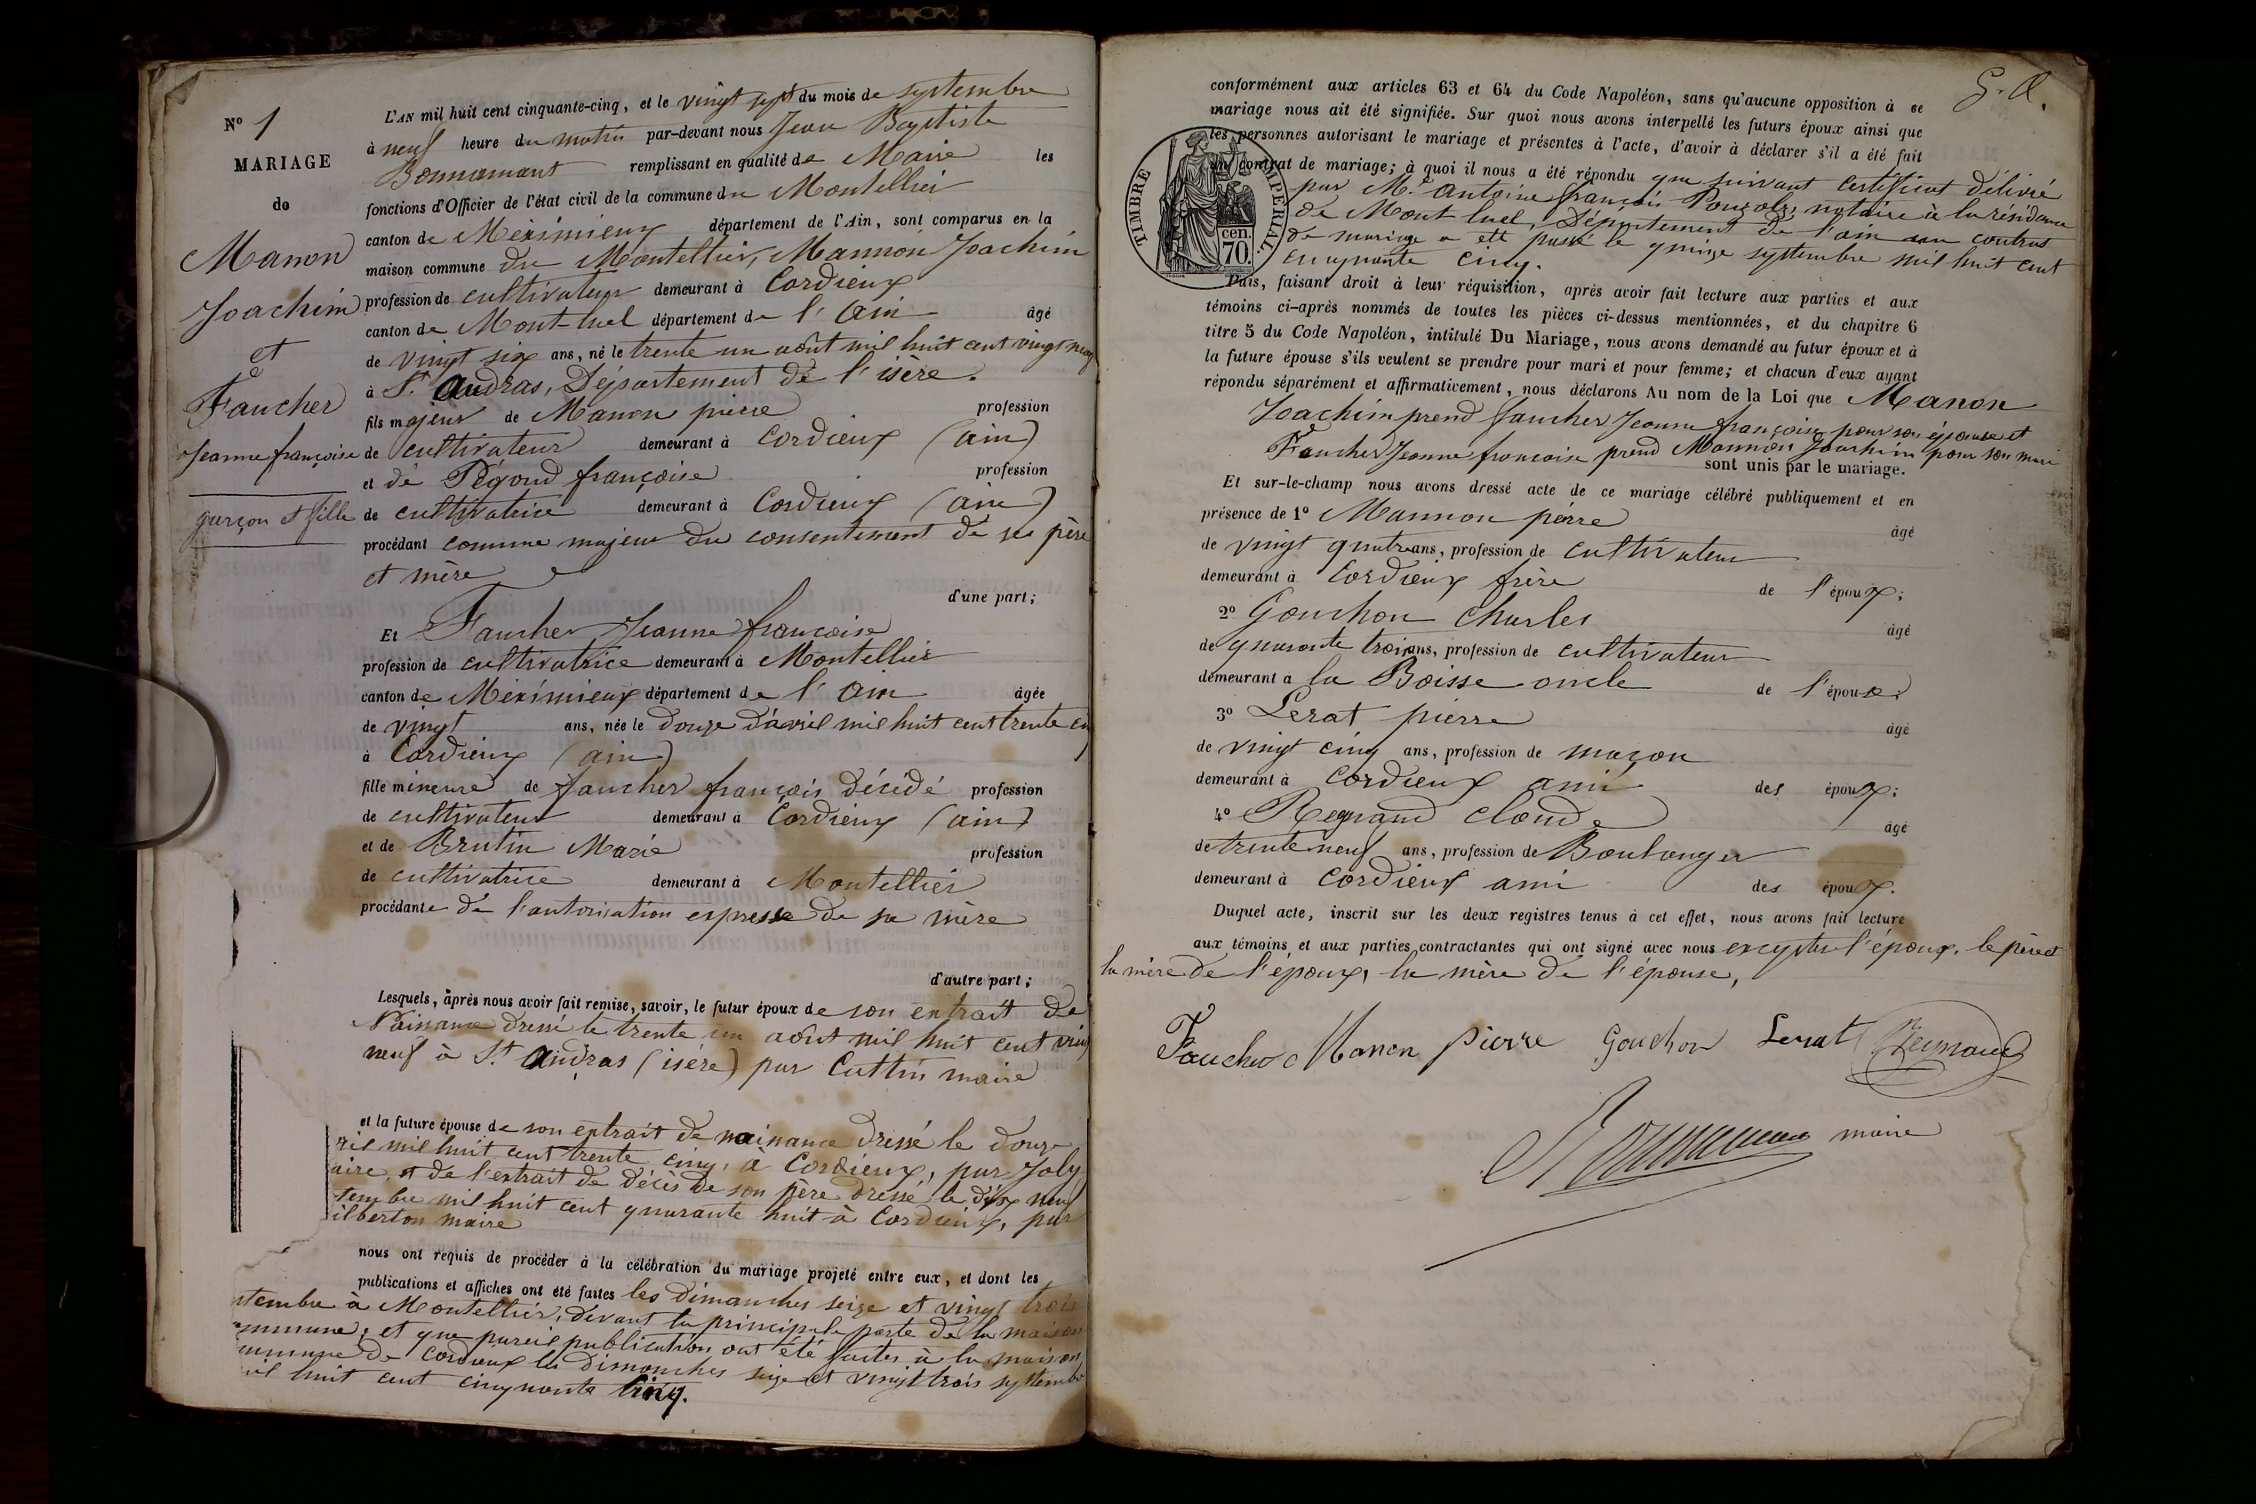 N° 1
MARIAGE
de
Manon
Joachim
et
Faucher
Jeanne françoise
garçon et fille
L'AN mil huit cent cinquante-cinq, et le vingt sept du mois de septembre
à neuf heure du matin par-devant nous Jean Baptiste
Bonnamant remplissant en qualité de Maire les
fonctions d'Officier de l'état civil de la commune du Montellier
canton de Méximieux département de l'Ain, sont comparus en la
maison commune du Montellier, Mannon Joachim
profession de cultivateur demeurant à Cordieux
canton de Mont-luel département de l'Ain âgé
de vingt six ans, né le trente un août mil huit cent vingt neuf
à St. Andras, Département de l'isère.
fils majeur de Manon pierre profession
de cultivateur demeurant à Cordieux (ain)
et de Pégoud françoise profession
de cultivatrice demeurant à Cordieux (ain)
procédant comme majeur du consentement de ses père
et mère
d'une part;
Et Faucher Jeanne françoise
profession de cultivatrice demeurant à Montellier
canton de Méximieux département de l'Ain âgée
de vingt ans, née le douze d'avril mil huit cent trente cinq
à Cordieux (ain)
fille mineure de faucher françois décédé profession
de cultivateur demeurant à Cordieux (ain)
et de Brutin Marie profession
de cultivatrice demeurant à Montellier
procédante de l'autorisation expresse de sa mère
d'autre part;
Lesquels, après nous avoir fait remise, savoir, le futur époux de son extrait de
Naissance dressé le trente un août mil huit cent vingt
neuf à St. Andras (isère) par Cuttin maire
et la future épouse de son extrait de naissance dressé le douze
ril mil huit cent trente cinq, à Cordieux, par Joly
aire, et de l'extrait de décès de son père dressé le dix neuf
tembre mil huit cent quarante huit à Cordieux, par
ilberton maire
nous ont requis de procéder à la célébration du mariage projeté entre eux, et dont les
publications et affiches ont été faites les dimanches seize et vingt trois
ptembre à Montellier, devant la principale porte de la maison
ommune, et que pareil publication ont été faites à la maison
ommune de Cordieux les dimanches seize et vingt trois septembre
mil huit cent cinquante cinq.
G. A.
conformément aux articles 63 et 64 du Code Napoléon, sans qu'aucune opposition à ce
mariage nous ait été signifiée. Sur quoi nous avons interpellé les futurs époux ainsi que
les personnes autorisant le mariage et présentes à l'acte, d'avoir à déclarer s'il a été fait
un contrat de mariage; à quoi il nous a été répondu que suivant certificat délivré
par Me. Antoine françois notaire à la résidence
de Mont luel, Département de l'ain contrat
de mariage a été passé le quinze septembre mil huit cent
cinquante cinq.
TIMBRE IMPERIAL
cen.
70.
Puis, faisant droit à leur réquisition, après avoir fait lecture aux parties et aux
témoins ci-après nommés de toutes les pièces ci-dessus mentionnées, et du chapitre 6
titre 5 du Code Napoléon, intitulé Du Mariage, nous avons demandé au futur époux et à
la future épouse s'ils veulent se prendre pour mari et pour femme; et chacun d'eux ayant
répondu séparément et affirmativement, nous déclarons Au nom de la Loi que Manon
Joachim prend faucher Jeanne françoise pour son épouse et
Faucher Jeanne francoise prend Mannon Joachim pour son mari
sont unis par le mariage.
Et sur-le-champ nous avons dressé acte de ce mariage célébré publiquement et en
présence de 1° Mannon pierre âgé
de vingt quatre ans, profession de cultivateur
demeurant à Cordieux frère de l'époux;
2° Gouchon Charles âgé
de quarante trois ans, profession de cultivateur
demeurant à la Boisse oncle de l'épouse;
3° Lerat pierre âgé
de vingt cinq ans, profession de maçon
demeurant à Cordieux ami des époux;
4° Regnaud Claude âgé
de trente neuf ans, profession de Boulanger
demeurant à Cordieux ami des époux.
Duquel acte, inscrit sur les deux registres tenus à cet effet, nous avons fait lecture
aux témoins et aux parties contractantes qui ont signé avec nous excepter l'époux, le père et
la mère de l'époux, la mère de l'épouse,
Faucher Manon pierre Gouchon Lerat Reynaud
Bonnamant maire